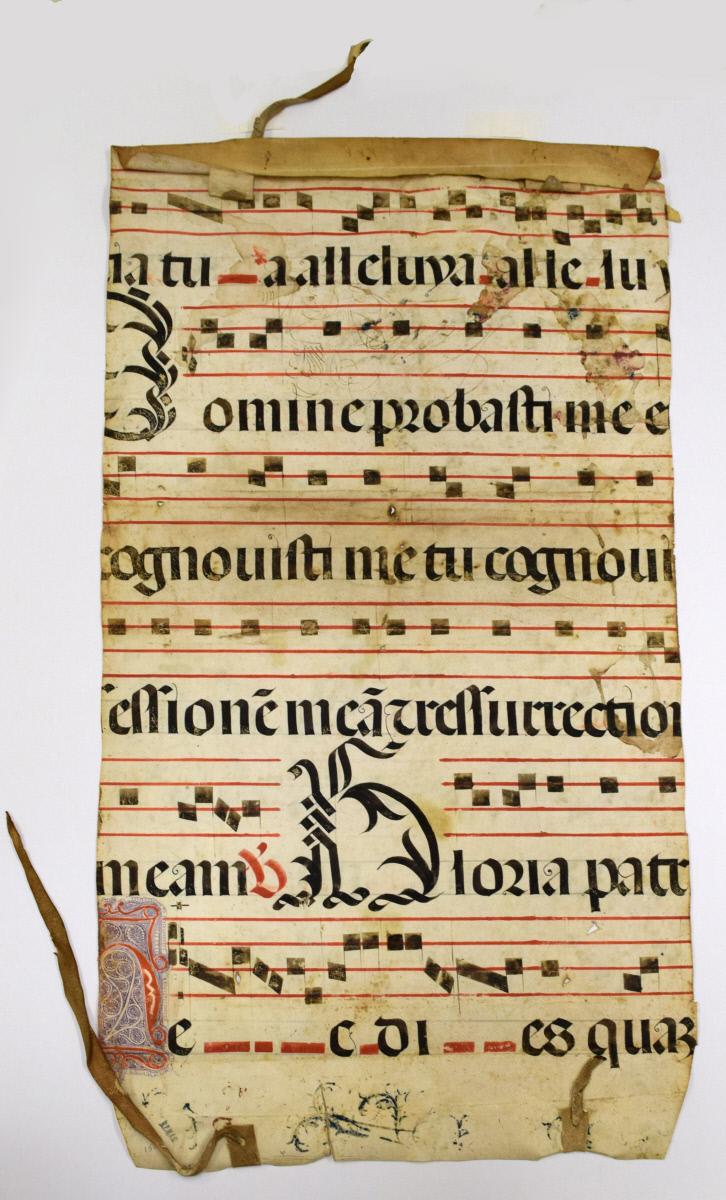 na tu a alleluya alle lu
Domine probasti me e
cognouisti me tu cognoui
essionē meā ⁊ ressurrection
meam Gloria patr
e c di es quaz